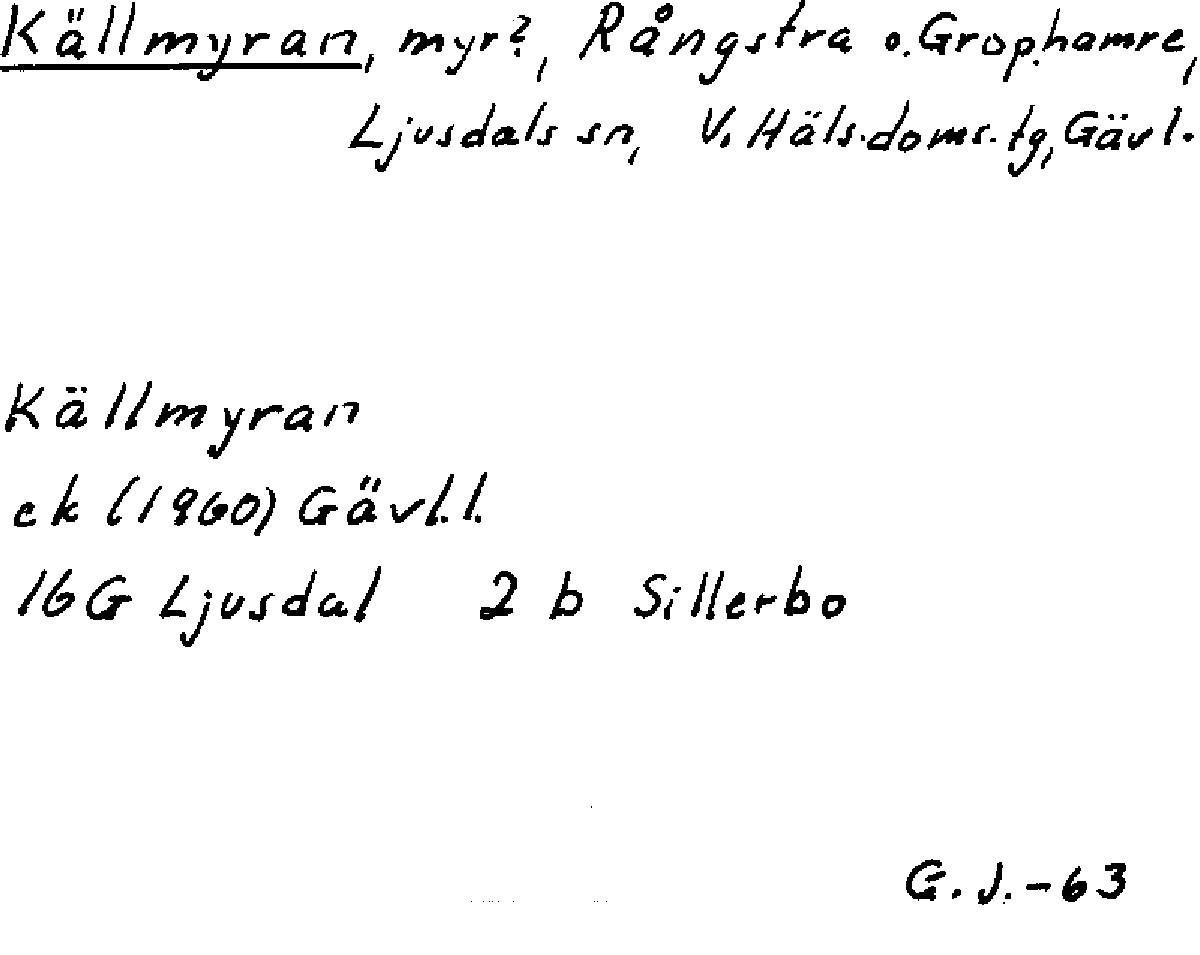 Källmyran, myr?, Rångstra o. Grophamre,
Ljusdals sn, V. Häls. doms. tg, Gävl.
Källmyran
ek (1960) Gävl. l.
16G Ljusdal 2 b Sillerbo
G. J. -63